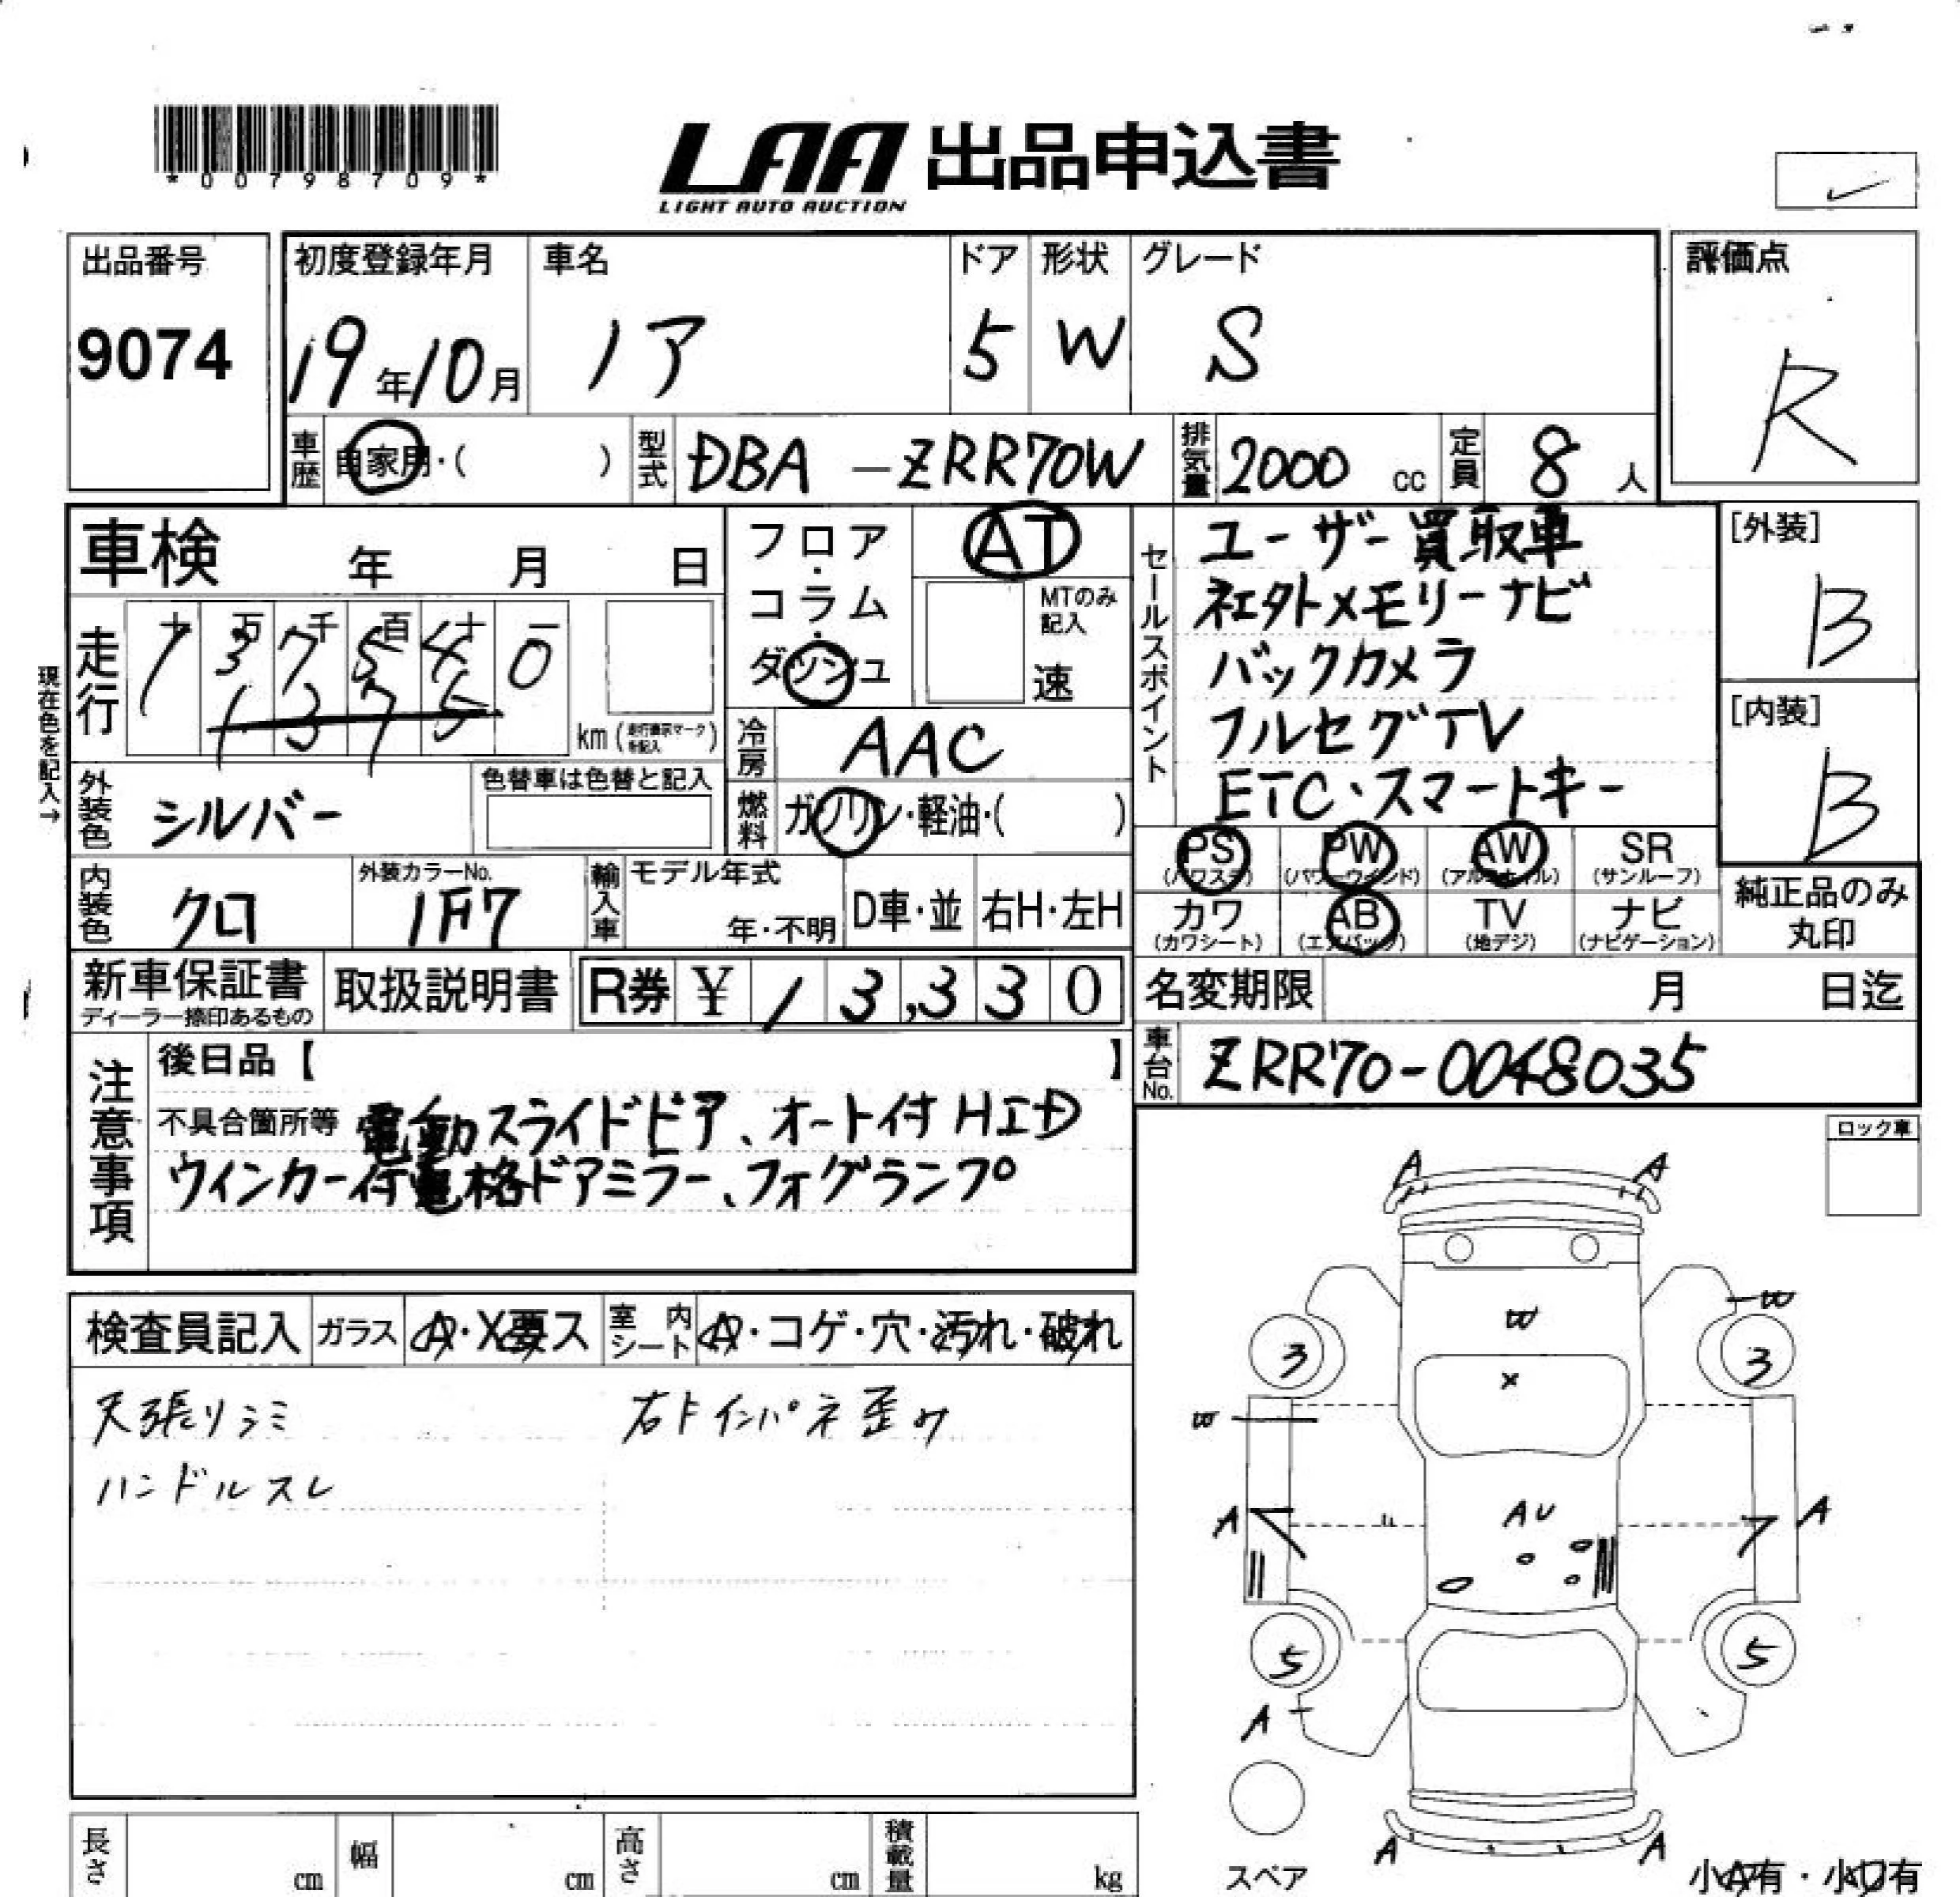 *00798709*
LAA 出品申込書
LIGHT AUTO AUCTION
出品番号
9074
初度登録年月
19年10月
車名
ノア
ドア
5
形状
W
グレード
S
評価点
R
車歴 自家用・( )
型式 DBA-ZRR70W
排気量 2000 cc
定員 8 人
車検 年 月 日
フロア・コラム・ダッシュ
AT
MTのみ記入
速
セールスポイント
ユーザー買取車
社外メモリーナビ
バックカメラ
フルセグTV
ETC・スマートキー
[外装]
B
[内装]
B
現在色を記入→
走行
十 万 千 百 十 一
1 3 7 5 4 0
1 3 7 5
km (走行表示マークを記入)
冷房 AAC
燃料 ガソリン・軽油・( )
外装色 シルバー
色替車は色替と記入
内装色 クロ
外装カラーNo.
1F7
輸入車
モデル年式
年・不明
D車・並
右H・左H
PS (パワステ)
PW (パワーウインド)
AW (アルミホイル)
SR (サンルーフ)
カワ (カワシート)
AB (エアバッグ)
TV (地デジ)
ナビ (ナビゲーション)
純正品のみ
丸印
新車保証書
ディーラー捺印あるもの
取扱説明書
R券 ¥ 13,330
名変期限 月 日迄
車台No. ZRR70-0048035
注意事項
後日品【 】
不具合箇所等 電動スライドドア、オート付HID
ウインカー付電格ドアミラー、フォグランプ
ロック車
検査員記入
ガラス A・X要ス
室内シート A・コゲ・穴・汚れ・破れ
天張りシミ
ハンドルスレ
右Fインパネ歪み
A A
W
W
3 3
X
W
A A
AU
5 5
A
A A
スペア
小A有・小U有
長さ cm
幅 cm
高さ cm
積載量 kg